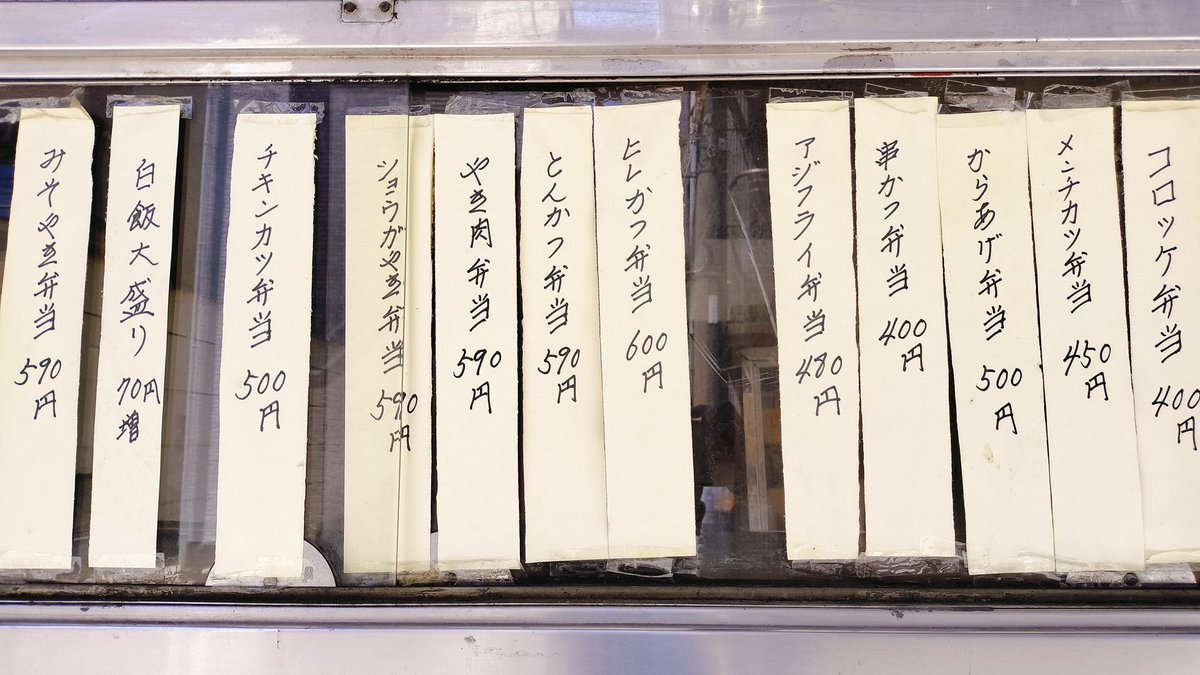 コロッケ弁当 400円
メンチカツ弁当 450円
からあげ弁当 500円
串かつ弁当 400円
アジフライ弁当 480円
ヒレかつ弁当 600円
とんかつ弁当 590円
やき肉弁当 590円
ショウガやき弁当 590円
チキンカツ弁当 500円
白飯大盛り 70円増
みそやき弁当 590円